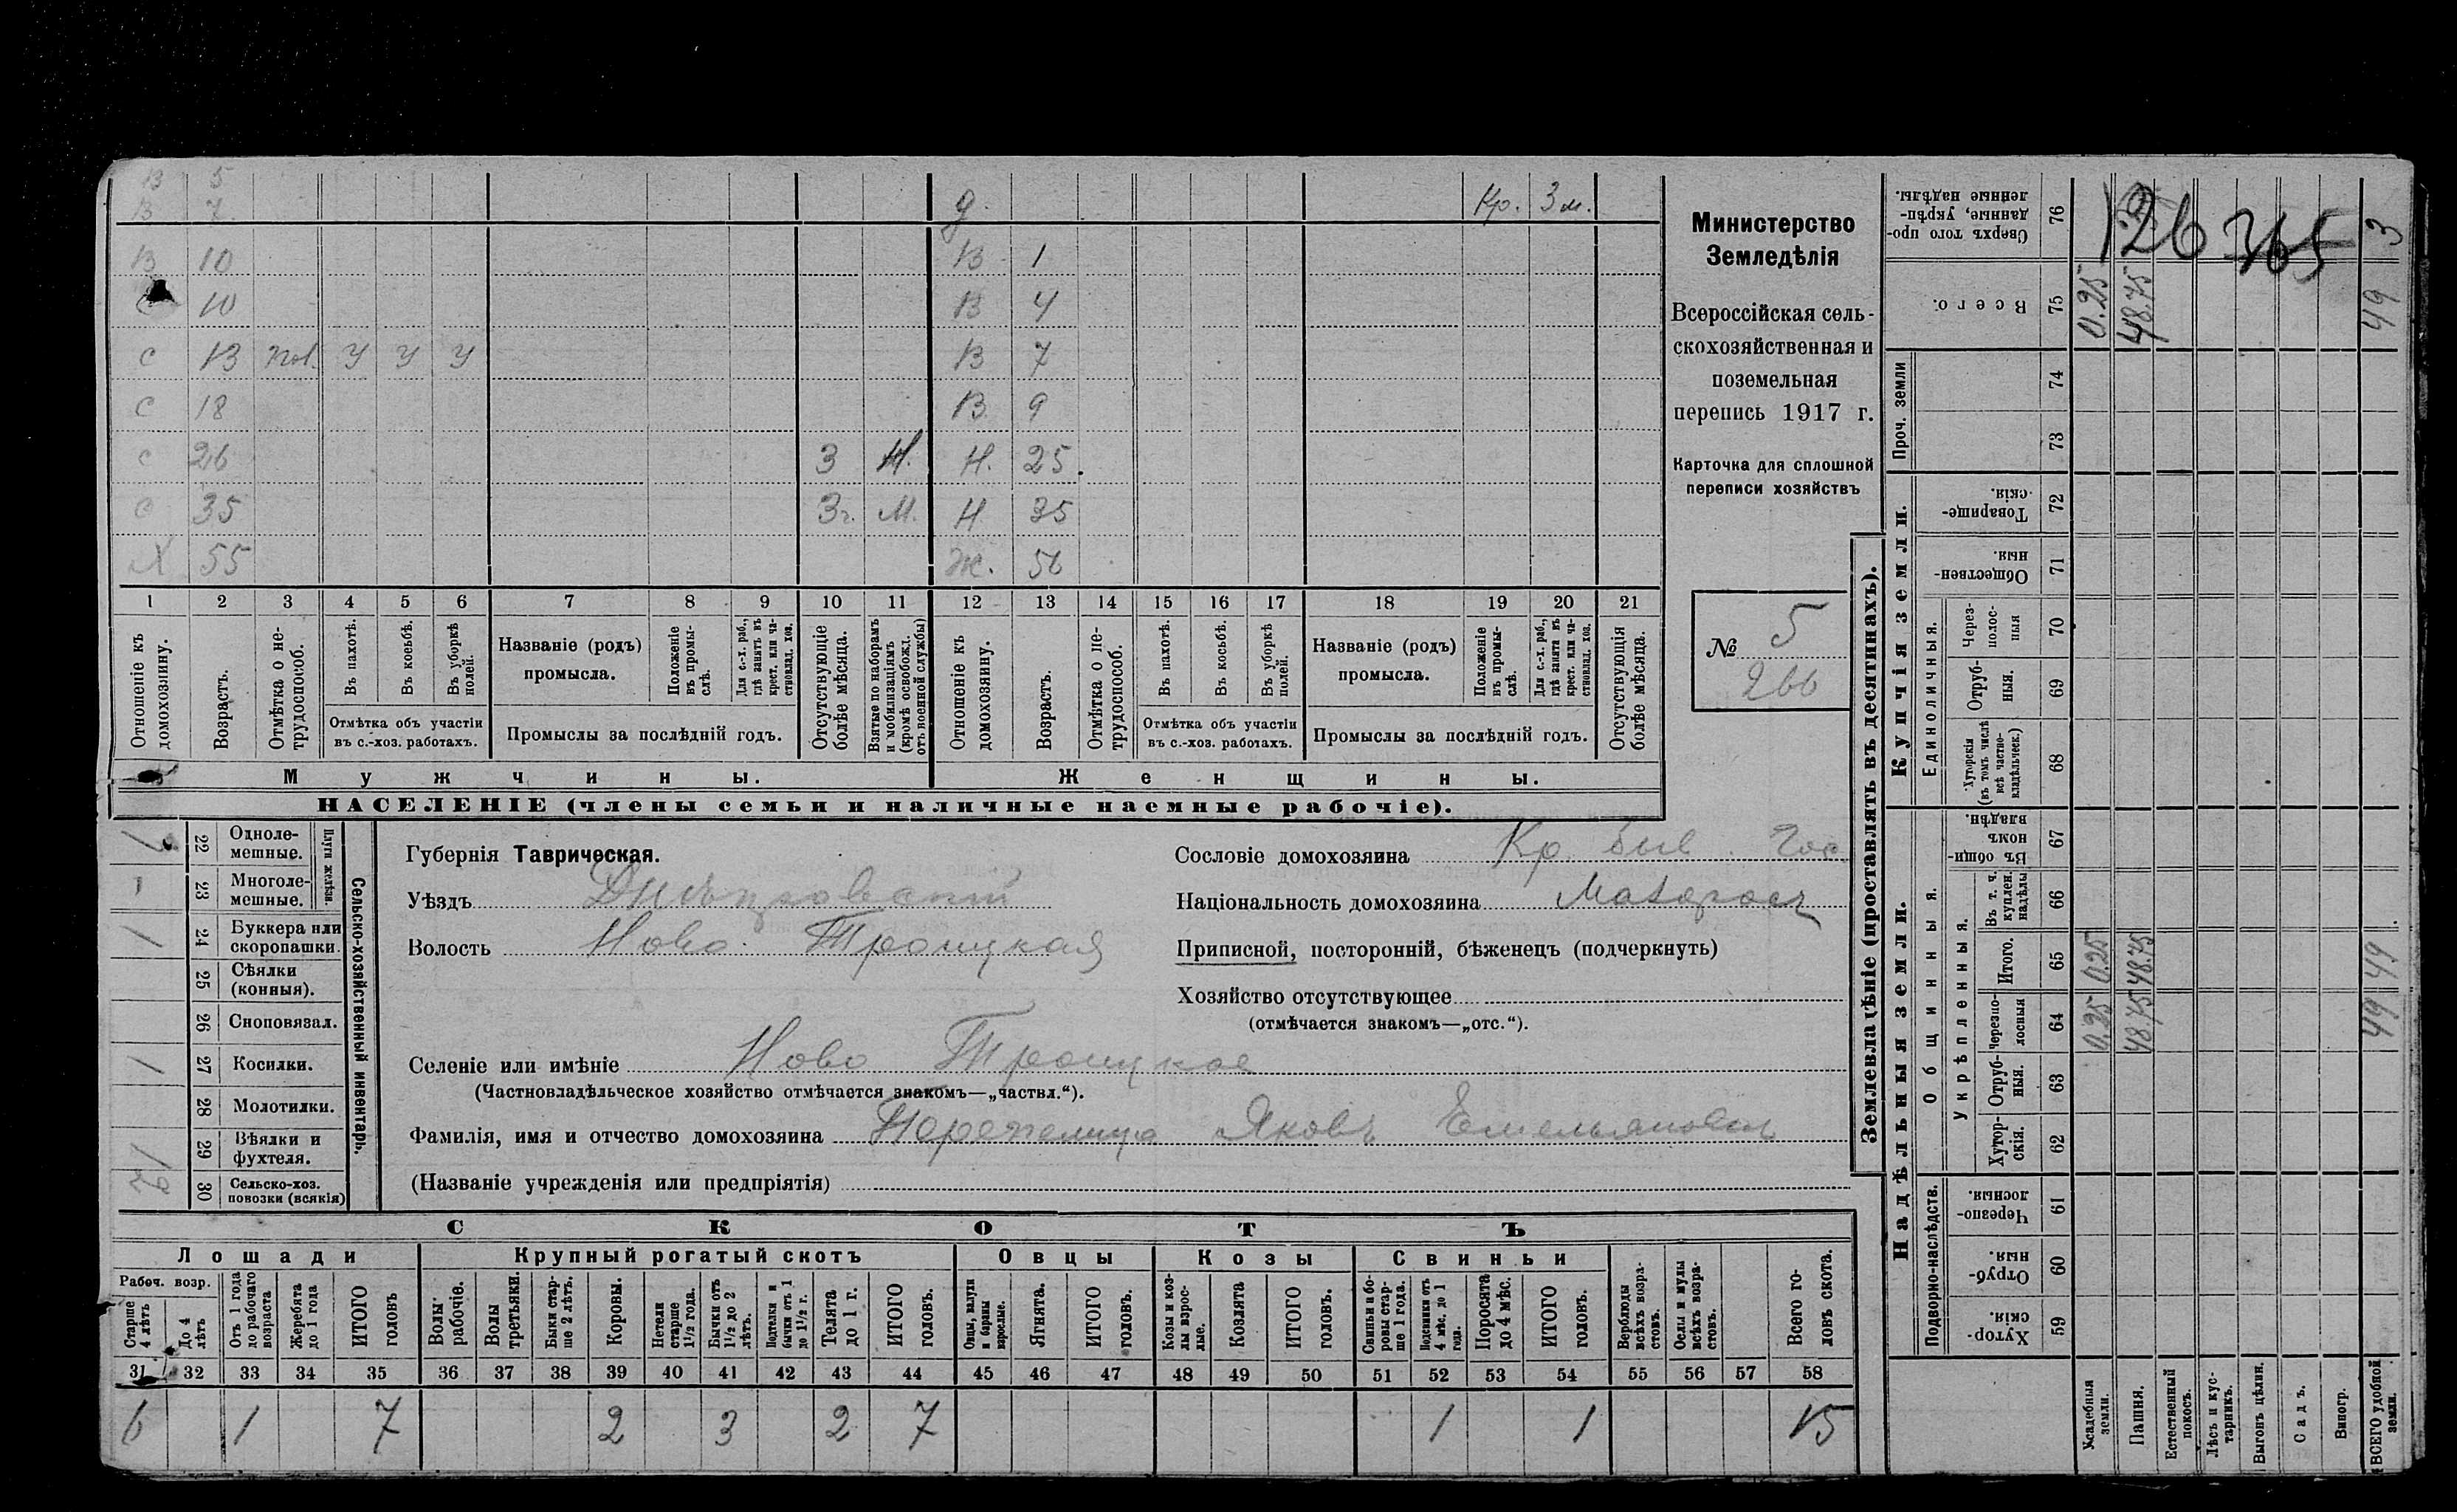 В 5
В 7 д. Кр. 3 м.
В 10 В 1
С 10 В 4
С 13 пол. У У У В 7
С 18 В 9
С 26 3 М. Н. 25.
С 35 3г. М. Н 35
Х 55 Ж. 56
1 2 3 4 5 6 7 8 9 10 11 12 13 14 15 16 17 18 19 20 21
Отношеніе къ домохозяину.
Возрастъ.
Отмѣтка о нетрудоспособ.
Въ пахотѣ.
Въ косьбѣ.
Въ уборкѣ полей.
Отмѣтка объ участіи
въ с.-хоз. работахъ.
Названіе (родъ)
промысла.
Положеніе въ промыслѣ.
Для с.-х. раб., гдѣ занятъ въ крест. или частновлад. хоз.
Промыслы за послѣдній годъ.
Отсутствующіе болѣе мѣсяца.
Взятые по наборамъ и мобилизаціямъ (кромѣ освобожд. отъ военной службы)
Отношеніе къ домохозяину.
Возрастъ.
Отмѣтка о нетрудоспособ.
Въ пахотѣ.
Въ косьбѣ.
Въ уборкѣ полей.
Отмѣтка объ участіи
въ с.-хоз. работахъ.
Названіе (родъ)
промысла.
Положеніе въ промыслѣ.
Для с.-х. раб., гдѣ занята въ крест. или частновлад. хоз.
Промыслы за послѣдній годъ.
Отсутствующія болѣе мѣсяца.
Мужчины. Женщины.
НАСЕЛЕНІЕ (члены семьи и наличные наемные рабочіе).
Министерство
Земледѣлія
Всероссійская сель-
скохозяйственная и
поземельная
перепись 1917 г.
Карточка для сплошной
переписи хозяйствъ
№ 5
266
Сельско-хозяйственный инвентарь.
Плуги желѣзн.
22 Однолемешные.
1 23 Многолемешные.
1 24 Буккера или скоропашки.
25 Сѣялки (конныя).
26 Сноповязал.
1 27 Косилки.
28 Молотилки.
1 29 Вѣялки и фухтеля.
30 Сельско-хоз. повозки (всякія)
Губернія Таврическая.
Уѣздъ Днѣпровскій
Волость Ново-Троицкая
Сословіе домохозяина Кр. быв. Гос.
Національность домохозяина Малоросъ
Приписной, посторонній, бѣженецъ (подчеркнуть)
Хозяйство отсутствующее
(отмѣчается знакомъ—„отс.“).
Селеніе или имѣніе Ново Троицкое
(Частновладѣльческое хозяйство отмѣчается знакомъ—„частвл.“).
Фамилія, имя и отчество домохозяина Перепелица Яковъ Емельяновъ
(Названіе учрежденія или предпріятія)
СКОТЪ
Лошади Крупный рогатый скотъ Овцы Козы Свиньи
Рабоч. возр.
Старше 4 лѣтъ
До 4 лѣтъ
Отъ 1 года до рабочаго возраста
Жеребята до 1 года
ИТОГО головъ
Волы рабочіе.
Волы третьяки.
Быки старше 2 лѣтъ.
Коровы.
Нетели старше 1½ года.
Бычки отъ 1½ до 2 лѣтъ.
Подтелки и бычки отъ 1 до 1½ г.
Телята до 1 г.
ИТОГО головъ.
Овцы, валухи и бараны взрослые.
Ягнята.
ИТОГО головъ.
Козы и козлы взрослые.
Козлята
ИТОГО головъ.
Свиньи и боровы старше 1 года.
Подсвинки отъ 4 мѣс. до 1 года.
Поросята до 4 мѣс.
ИТОГО головъ.
Верблюды всѣхъ возрастовъ.
Ослы и мулы всѣхъ возрастовъ.
Всего головъ скота.
31 32 33 34 35 36 37 38 39 40 41 42 43 44 45 46 47 48 49 50 51 52 53 54 55 56 57 58
6 1 7 2 3 2 7 1 1 15
Землевладѣніе (проставлять въ десятинахъ).
126 365
Сверхъ того проданные, укрѣпленные надѣлы. 76 3
Всего. 75 0.25 48.75 49
Проч. земли 74
73
Купчія земли.
Товарищескія. 72
Общественныя. 71
Единоличныя.
Черезполосныя 70
Отрубныя. 69
Хуторскія (въ томъ числѣ всѣ частновладѣльческ.) 68
Надѣльныя земли.
Общинныя.
Въ общинномъ владѣн. 67
Укрѣпленныя.
Въ т. ч. куплен. надѣлы 66
Итого. 65 0.25 48.75 49
Черезполосныя 64 0.25 48.75 49
Отрубныя. 63
Хуторскія. 62
Подворно-наслѣдств.
Черезполосныя. 61
Отрубныя. 60
Хуторскія 59
Усадебныя земли.
Пашня.
Естественный покосъ.
Лѣсъ и кустарникъ.
Выгонъ цѣлин.
Садъ.
Виногр.
ВСЕГО удобной земли.